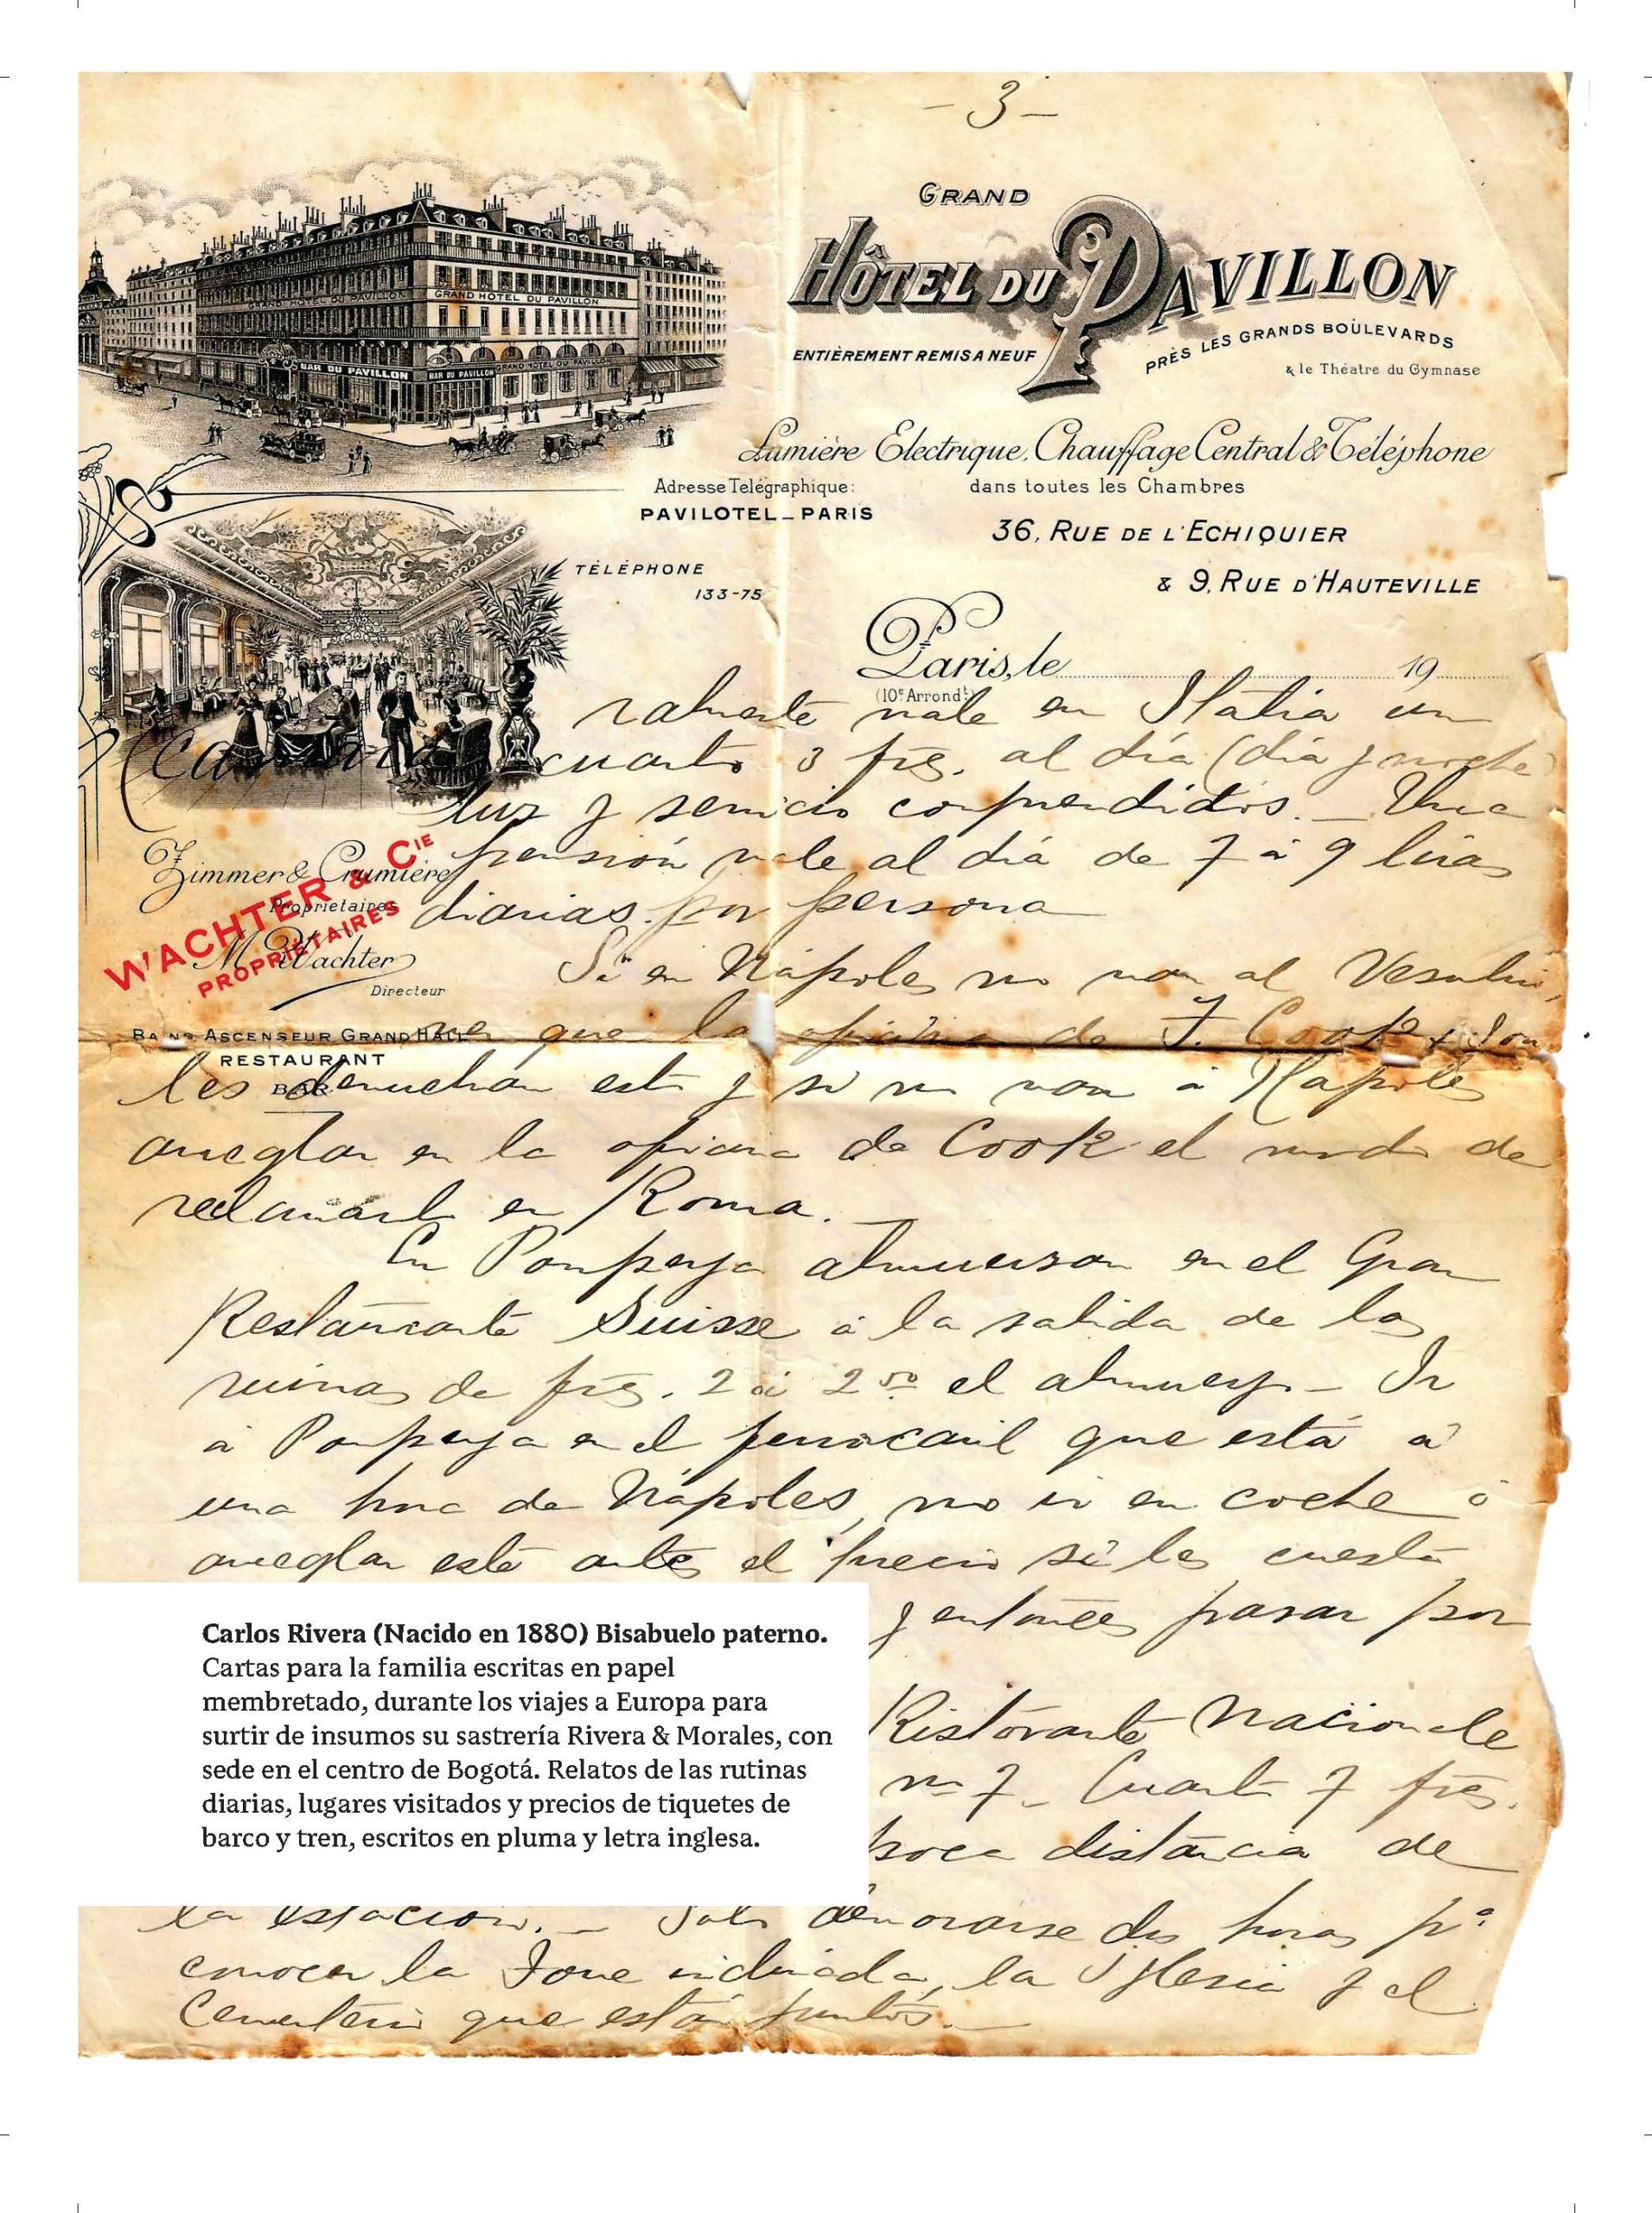 - 3 -
GRAND
HÔTEL DU PAVILLON
ENTIÈREMENT REMIS A NEUF
PRÈS LES GRANDS BOULEVARDS
& le Théatre du Gymnase
GRAND HOTEL DU PAVILLON
GRAND HOTEL DU PAVILLON
BAR DU PAVILLON
BAR DU PAVILLON
GRAND HOTEL DU PAVILLON
Lumière Electrique, Chauffage Central & Téléphone
dans toutes les Chambres
Adresse Telégraphique:
PAVILOTEL_PARIS
36, RUE DE L'ECHIQUIER
TÉLÉPHONE
133-75
& 9, RUE D'HAUTEVILLE
Paris, le 19
(10e Arrondt)
ralmente vale en Italia un
cuarto 3 frs. al día (día y noche
luz y servicio comprendidos. _ Una
pensión vale al día de 7 á 9 liras
diarias por persona
Zimmer & Crumière
Propriétaires
WACHTER & CIE
PROPRIÉTAIRES
M. Wachter
Directeur
BAINS ASCENSEUR GRAND HALL
RESTAURANT
BAR
Si en Nápoles no van al Vesubio,
ver que la oficina de T. Cook & Son
les devuelvan esto y si no van á Nápoles
arreglar en la oficina de Cook el modo de
reclamarlo en Roma.
En Pompeya almuerzan en el Gran
Restaurante Suisse á la salida de las
ruinas de frs. 2 á 2 50 el almuerzo - Ir
á Pompeya en el ferrocarril que está á
una hora de Nápoles, no ir en coche ó
arreglar este antes el precio si les cuesta
y entonces pasar por
Ristorante Nazionale
no 7 - Cuarto 7 frs.
poca distancia de
la estación. - Solo demorarse dos horas pa
conocer la Torre inclinada, la Iglesia y el
Cementerio que están juntos. -
Carlos Rivera (Nacido en 1880) Bisabuelo paterno.
Cartas para la familia escritas en papel
membretado, durante los viajes a Europa para
surtir de insumos su sastrería Rivera & Morales, con
sede en el centro de Bogotá. Relatos de las rutinas
diarias, lugares visitados y precios de tiquetes de
barco y tren, escritos en pluma y letra inglesa.